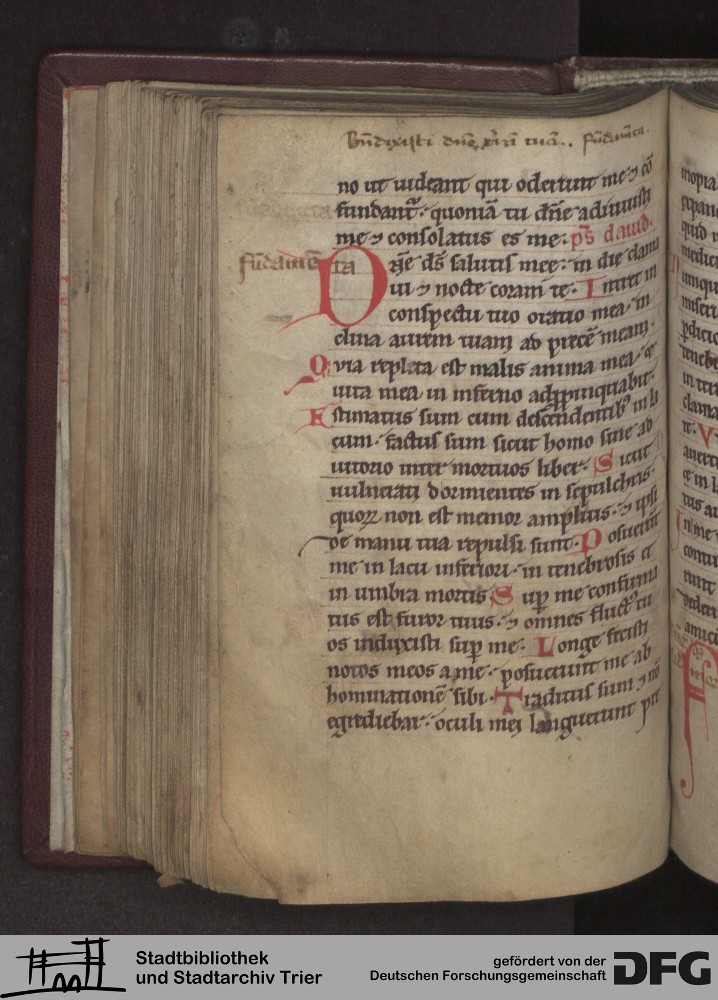 Bn̄dixisti dn̄e t̄rā tuā. fūdam̄ta.
no ut uideant qui oderunt me ⁊ cō
fundant᷑. quoniā tu dn̄e adiuuisti
me ⁊ consolatus es me. ps̄ dauid.
fūdamēta
Dn̄e ds̄ salutis mee. in die clama
ui ⁊ nocte coram te. Intret in
conspectu tuo oratio mea. in
clina aurem tuam ad precē meam.
Quia repleta est malis anima mea. ⁊
uita mea in inferno adp̱pinquabit.
Estimatus sum cum descendentib᷒ in la
cum. factus sum sicut homo sine ad
iutorio inter mortuos liber. Sicut
uulnerati dormientes in sepulchris.
quoꝝ non est memor amplius. ⁊ ipsi
de manu tua repulsi sunt. Posuerūt
me in lacu inferiori. in tenebrosis et
in umbra mortis. Sup̱ me confirma
tus est furor tuus. ⁊ omnes fluct᷒ tu
os induxisti sup̱ me. Longe fecisti
notos meos a me. posuerunt me ab
hominationē sibi. Traditus sum ⁊ nō
egrediebar. oculi mei languerunt pre
Stadtbibliothek
und Stadtarchiv Trier
gefördert von der
Deutschen Forschungsgemeinschaft
DFG